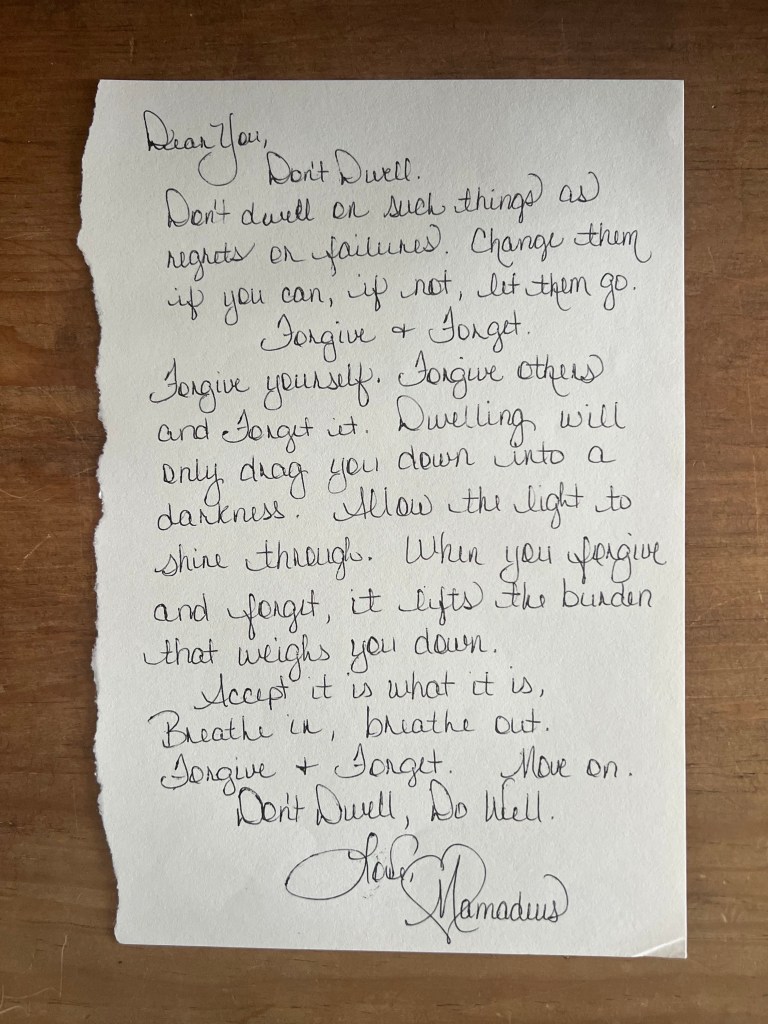 Dear You,
Don't Dwell.
Don't dwell on such things as
regrets or failures. Change them
if you can, if not, let them go.
Forgive + Forget.
Forgive yourself. Forgive others
and Forget it. Dwelling will
only drag you down into a
darkness. Allow the light to
shine through. When you forgive
and forget, it lifts the burden
that weighs you down.
Accept it is what it is,
Breathe in, breathe out.
Forgive + Forget. Move on.
Don't Dwell, Do Well.
Love,
Mamadeus